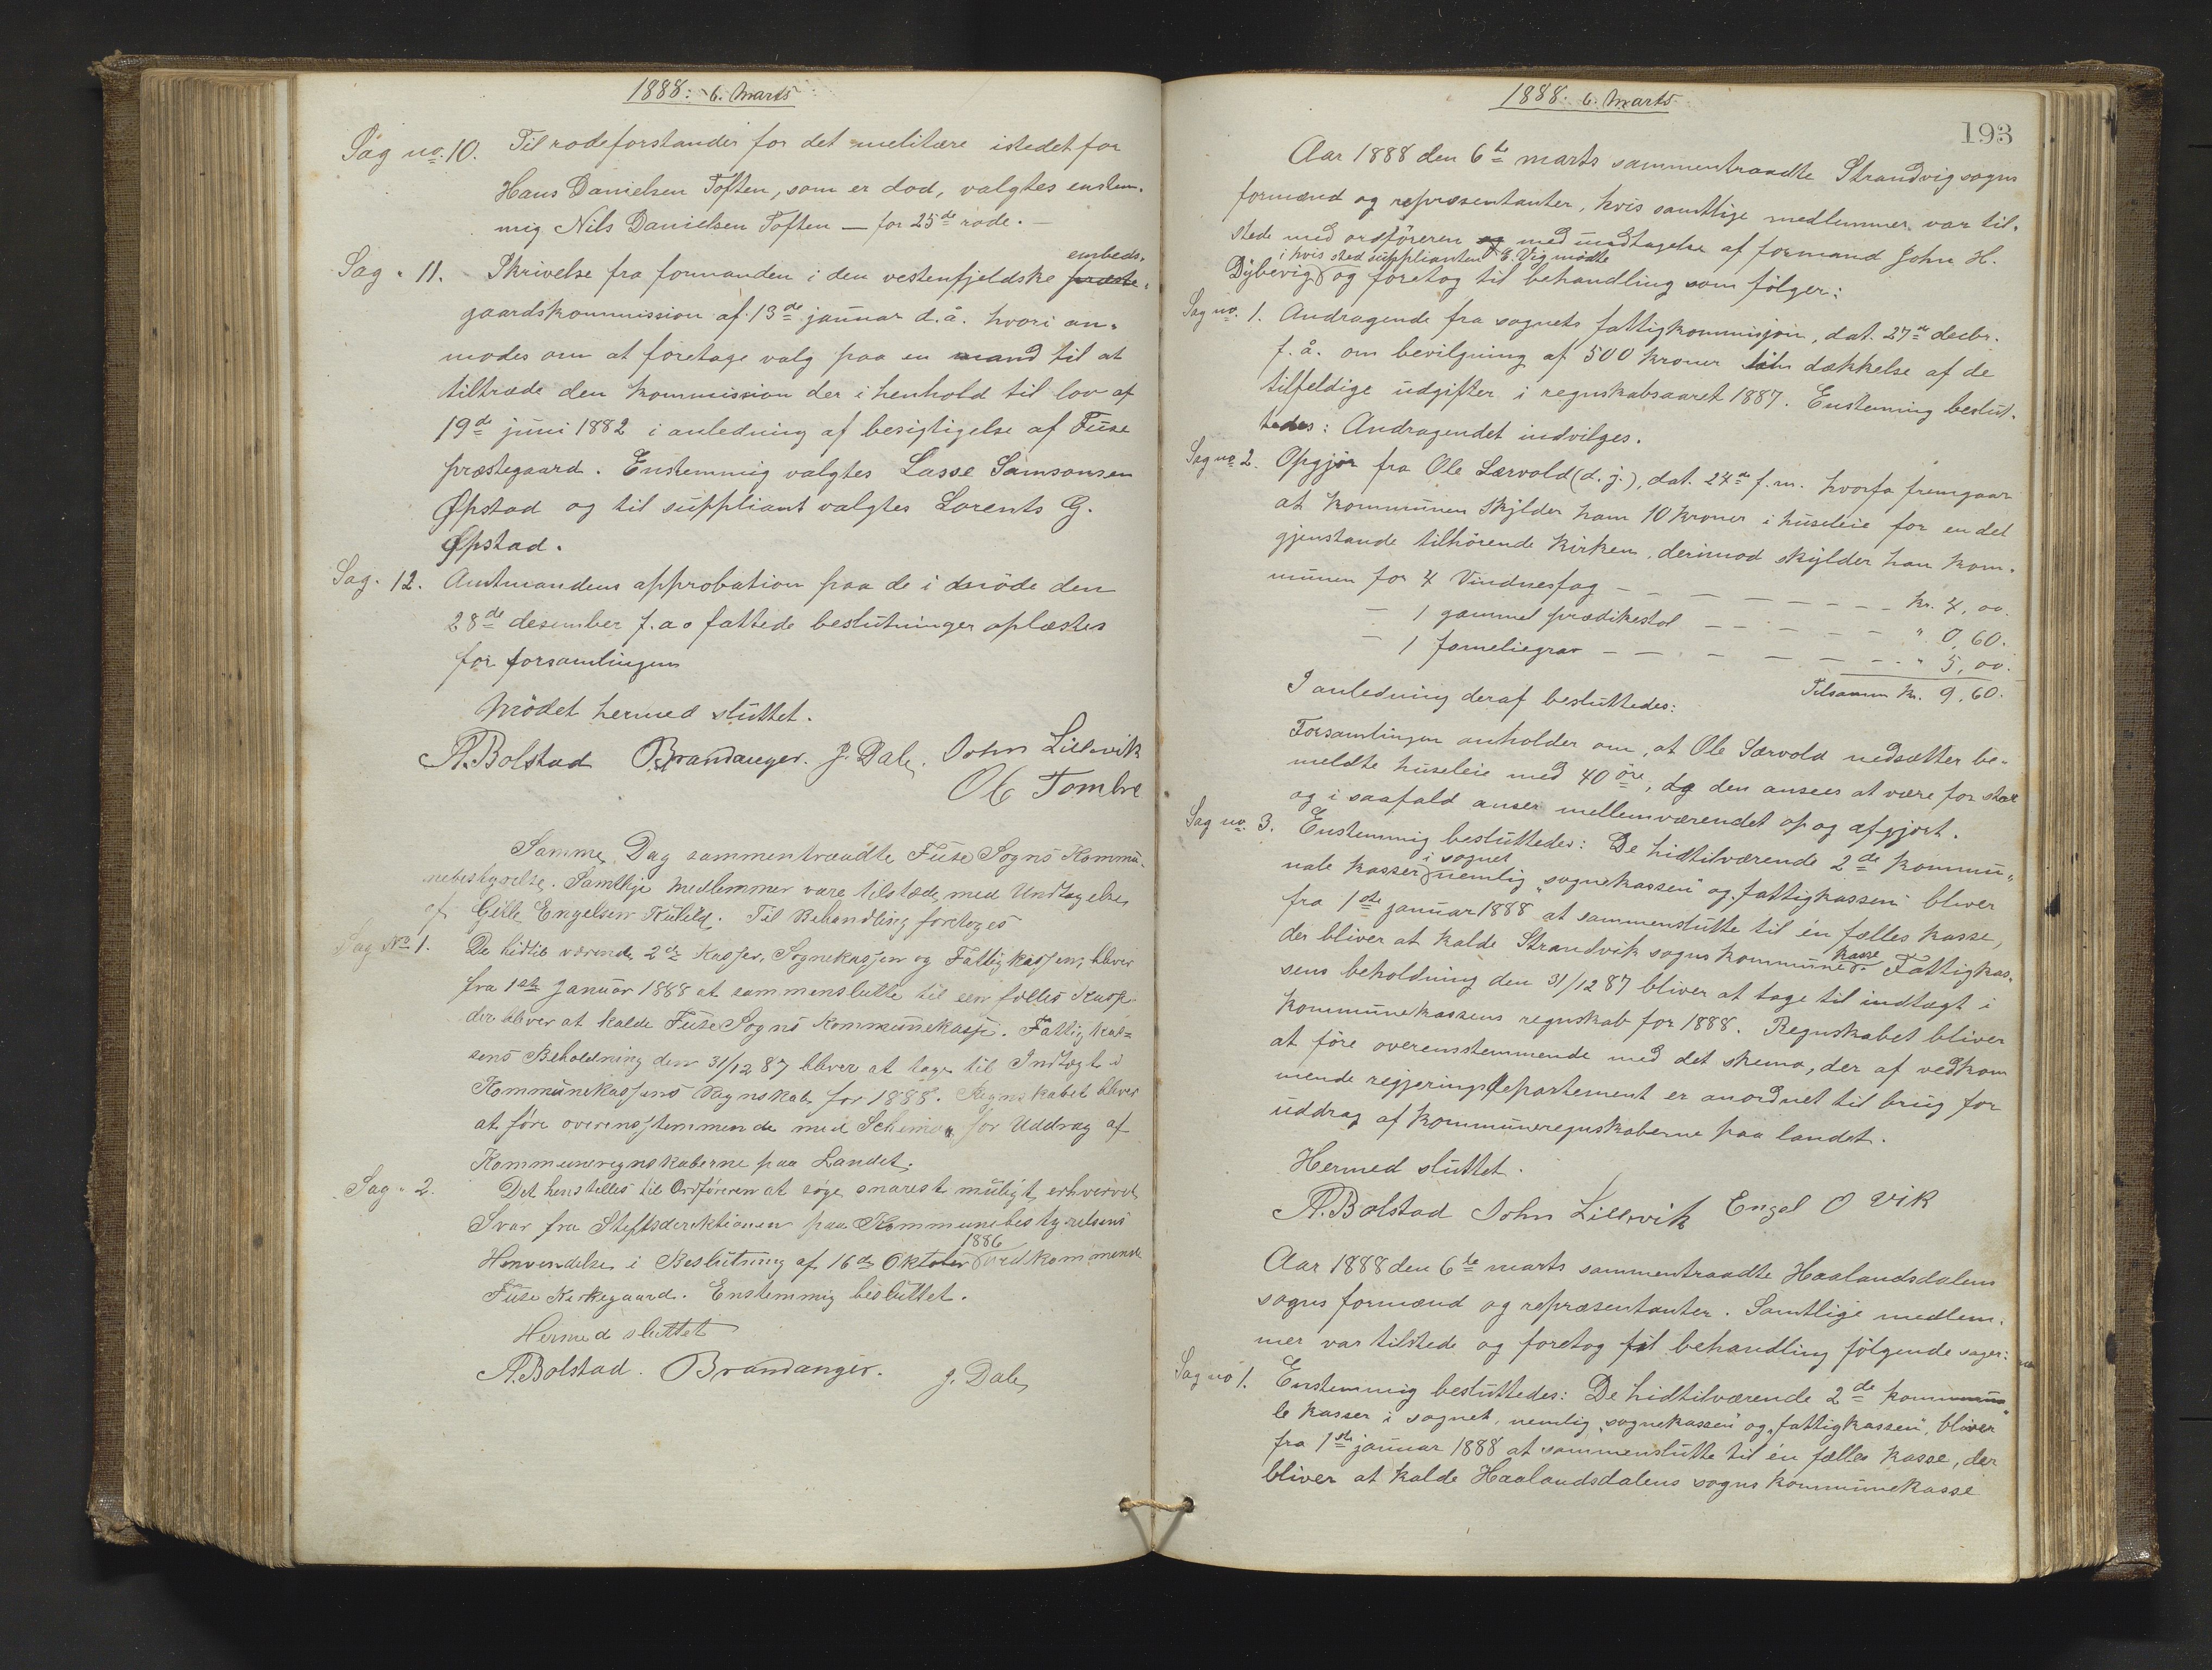 1888: 6. Marts
Sag no. 10. Til rodeforstander for det melitære istedet for
Hans Danielsen Toften, som er död, valgtes enstem-
mig Nils Danielsen Toften — for 25de rode. —
Sag " 11. Skrivelse fra formanden i den vestenfjeldske præste- embeds-
gaardskommission af 13de januar d. å. hvori an-
modes om at foretage valg paa en mand til at
tiltræde den kommission der i henhold til lov af
19de juni 1882 i anledning af besigtigelse af Fuse
præstegaard. Enstemmig valgtes Lasse Samsonsen
Øpstad og til suppliant valgtes Lorents G.
Øpstad.
Sag " 12. Amtmandens approbation paa de i möde den
28de desember f. a. fattede beslutninger oplæstes
for forsamlingen
Mödet hermed sluttet.
A. Bolstad Brandanger. J. Dale. John Lillevik
Ole Tombre
Samme Dag sammentraadte Fuse Sogns Kommu-
nebestyrelse. Samtlige Medlemmer vare tilstæde, med Undtagelse
af Gitle Engelsen Kuhild. Til Behandling foretoges
Sag No 1. De hidtil værende 2de Kasser, Sognekassen og Fattigkassen, bliver
fra 1ste Januar 1888 at sammenslutte til een fælles Kasse
der bliver at kalde Fuse Sogns Kommunekasse. Fattigkas-
sens Beholdning den 31/12 87 bliver at tage til Indtægt i
Kommunekassens Regnskab for 1888. Regnskabet bliver
at före overensstemmende med Schema for Uddrag af
Kommuneregnskaberne paa Landet.
Sag " 2. Det henstilles til Ordföreren at söge snarest muligt erhvervet
Svar fra Stiftsdirektionen paa Kommunebestyrelsens
Henvendelse i Beslutning af 16de Oktober 1886 vedkommende
Fuse Kirkegaard. Enstemmig besluttet.
Hermed sluttet
A. Bolstad. Brandanger. J. Dale
1888: 6. Marts
193
Aar 1888 den 6te marts sammentraadte Strandvig sogns
formænd og repræsentanter, hvis samtlige medlemmer var til-
stede med ordföreren og med undtagelse af formand John H.
i hvis sted supplianten E. Vig mödte
Dybevig og foretog til behandling som fölger:
Sag no. 1. Andragende fra sognets fattigkommisjon, dat. 27de decbr.
f. å. om bevilgning af 500 kroner til dækkelse af de
tilfeldige udgifter i regnskabsaaret 1887. Enstemmig beslut-
tedes: Andragendet indvilges.
Sag no 2. Opgjör fra Ole Særvold (d. j.), dat. 24de f. m. hvorfa fremgaar
at kommunen skylder ham 10 kroner i husleie for en del
gjenstande tilhörende kirken, derimod skylder han kom-
munen for 4 Vinduesfag — — — — — — — — kr. 4,00.
— 1 gammel prædikestol — — — — — — " 0,60.
— 1 fameliegrav — — — — — — — " 5,00.
Tilsamm kr. 9,60.
I anledning deraf besluttedes:
Forsamlingen anholder om, at Ole Særvold nedsætter be-
meldte husleie med 40 öre, da den ansees at være for stor
og i saafald anser mellemværendet op og afgjort.
Sag no. 3. Enstemmig besluttedes: De hidtilværende 2de kommu-
nale kasser i sognet nemlig "sognekassen" og "fattigkassen" bliver
fra 1ste januar 1888 at sammenslutte til én fælles kasse,
der bliver at kalde Strandvik sogns kommunekasse. Fattigkas-
sens beholdning den 31/12 87 bliver at tage til indtægt i
kommunekassens regnskab for 1888. Regnskabet bliver
at före overensstemmende med det skema, der af vedkom
mende regjeringsdepartement er anordnet til brug for
uddrag af kommuneregnskaberne paa landet.
Hermed sluttet.
A. Bolstad John Lillevik Engel O Vik
Aar 1888 den 6te marts sammentraadte Haalandsdalens
sogns formænd og repræsentanter. Samtlige medlem-
mer var tilstede og foretog til behandling fölgende sager:
Sag no 1. Enstemmig besluttedes: De hidtilværende 2de kommuna-
le kasser i sognet, nemlig "sognekassen" og "fattigkassen", bliver
fra 1ste januar 1888 at sammenslutte til én fælles kasse, der
bliver at kalde Haalandsdalens sogns kommunekasse